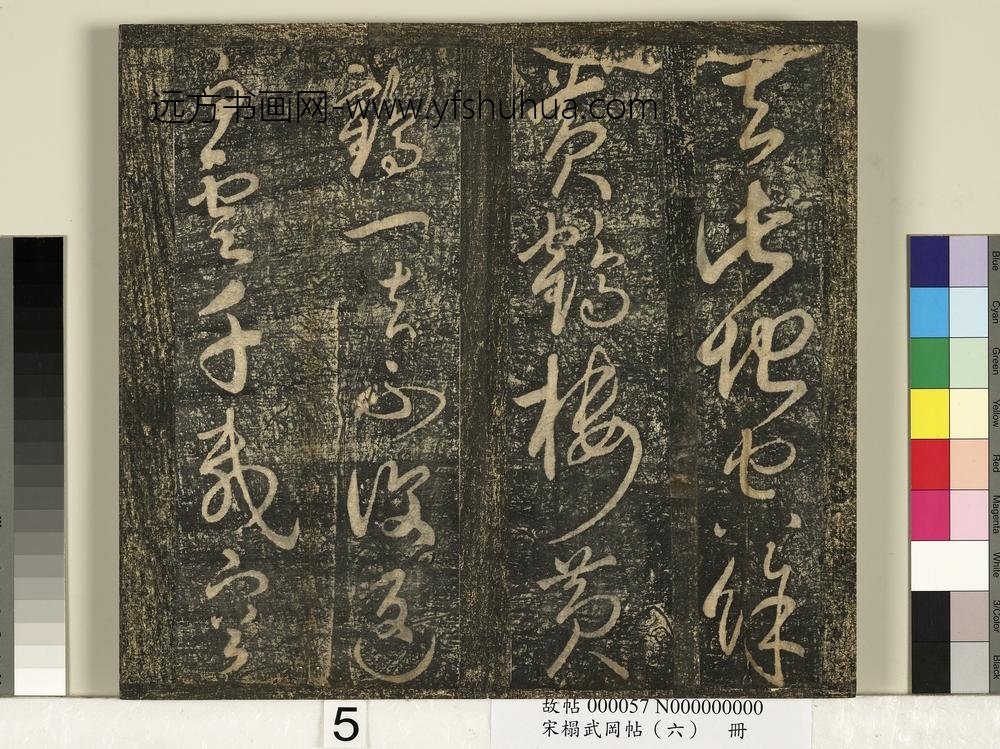 去此地空餘
黃鶴樓黃
鶴一去不復返
白雲千載空
远方书画网-www.yfshuhua.com
5
故帖 000057 N000000000
宋榻武岡帖（六） 冊
Blue
Cyan
Green
Yellow
Red
Magenta
White
3/Color
Black